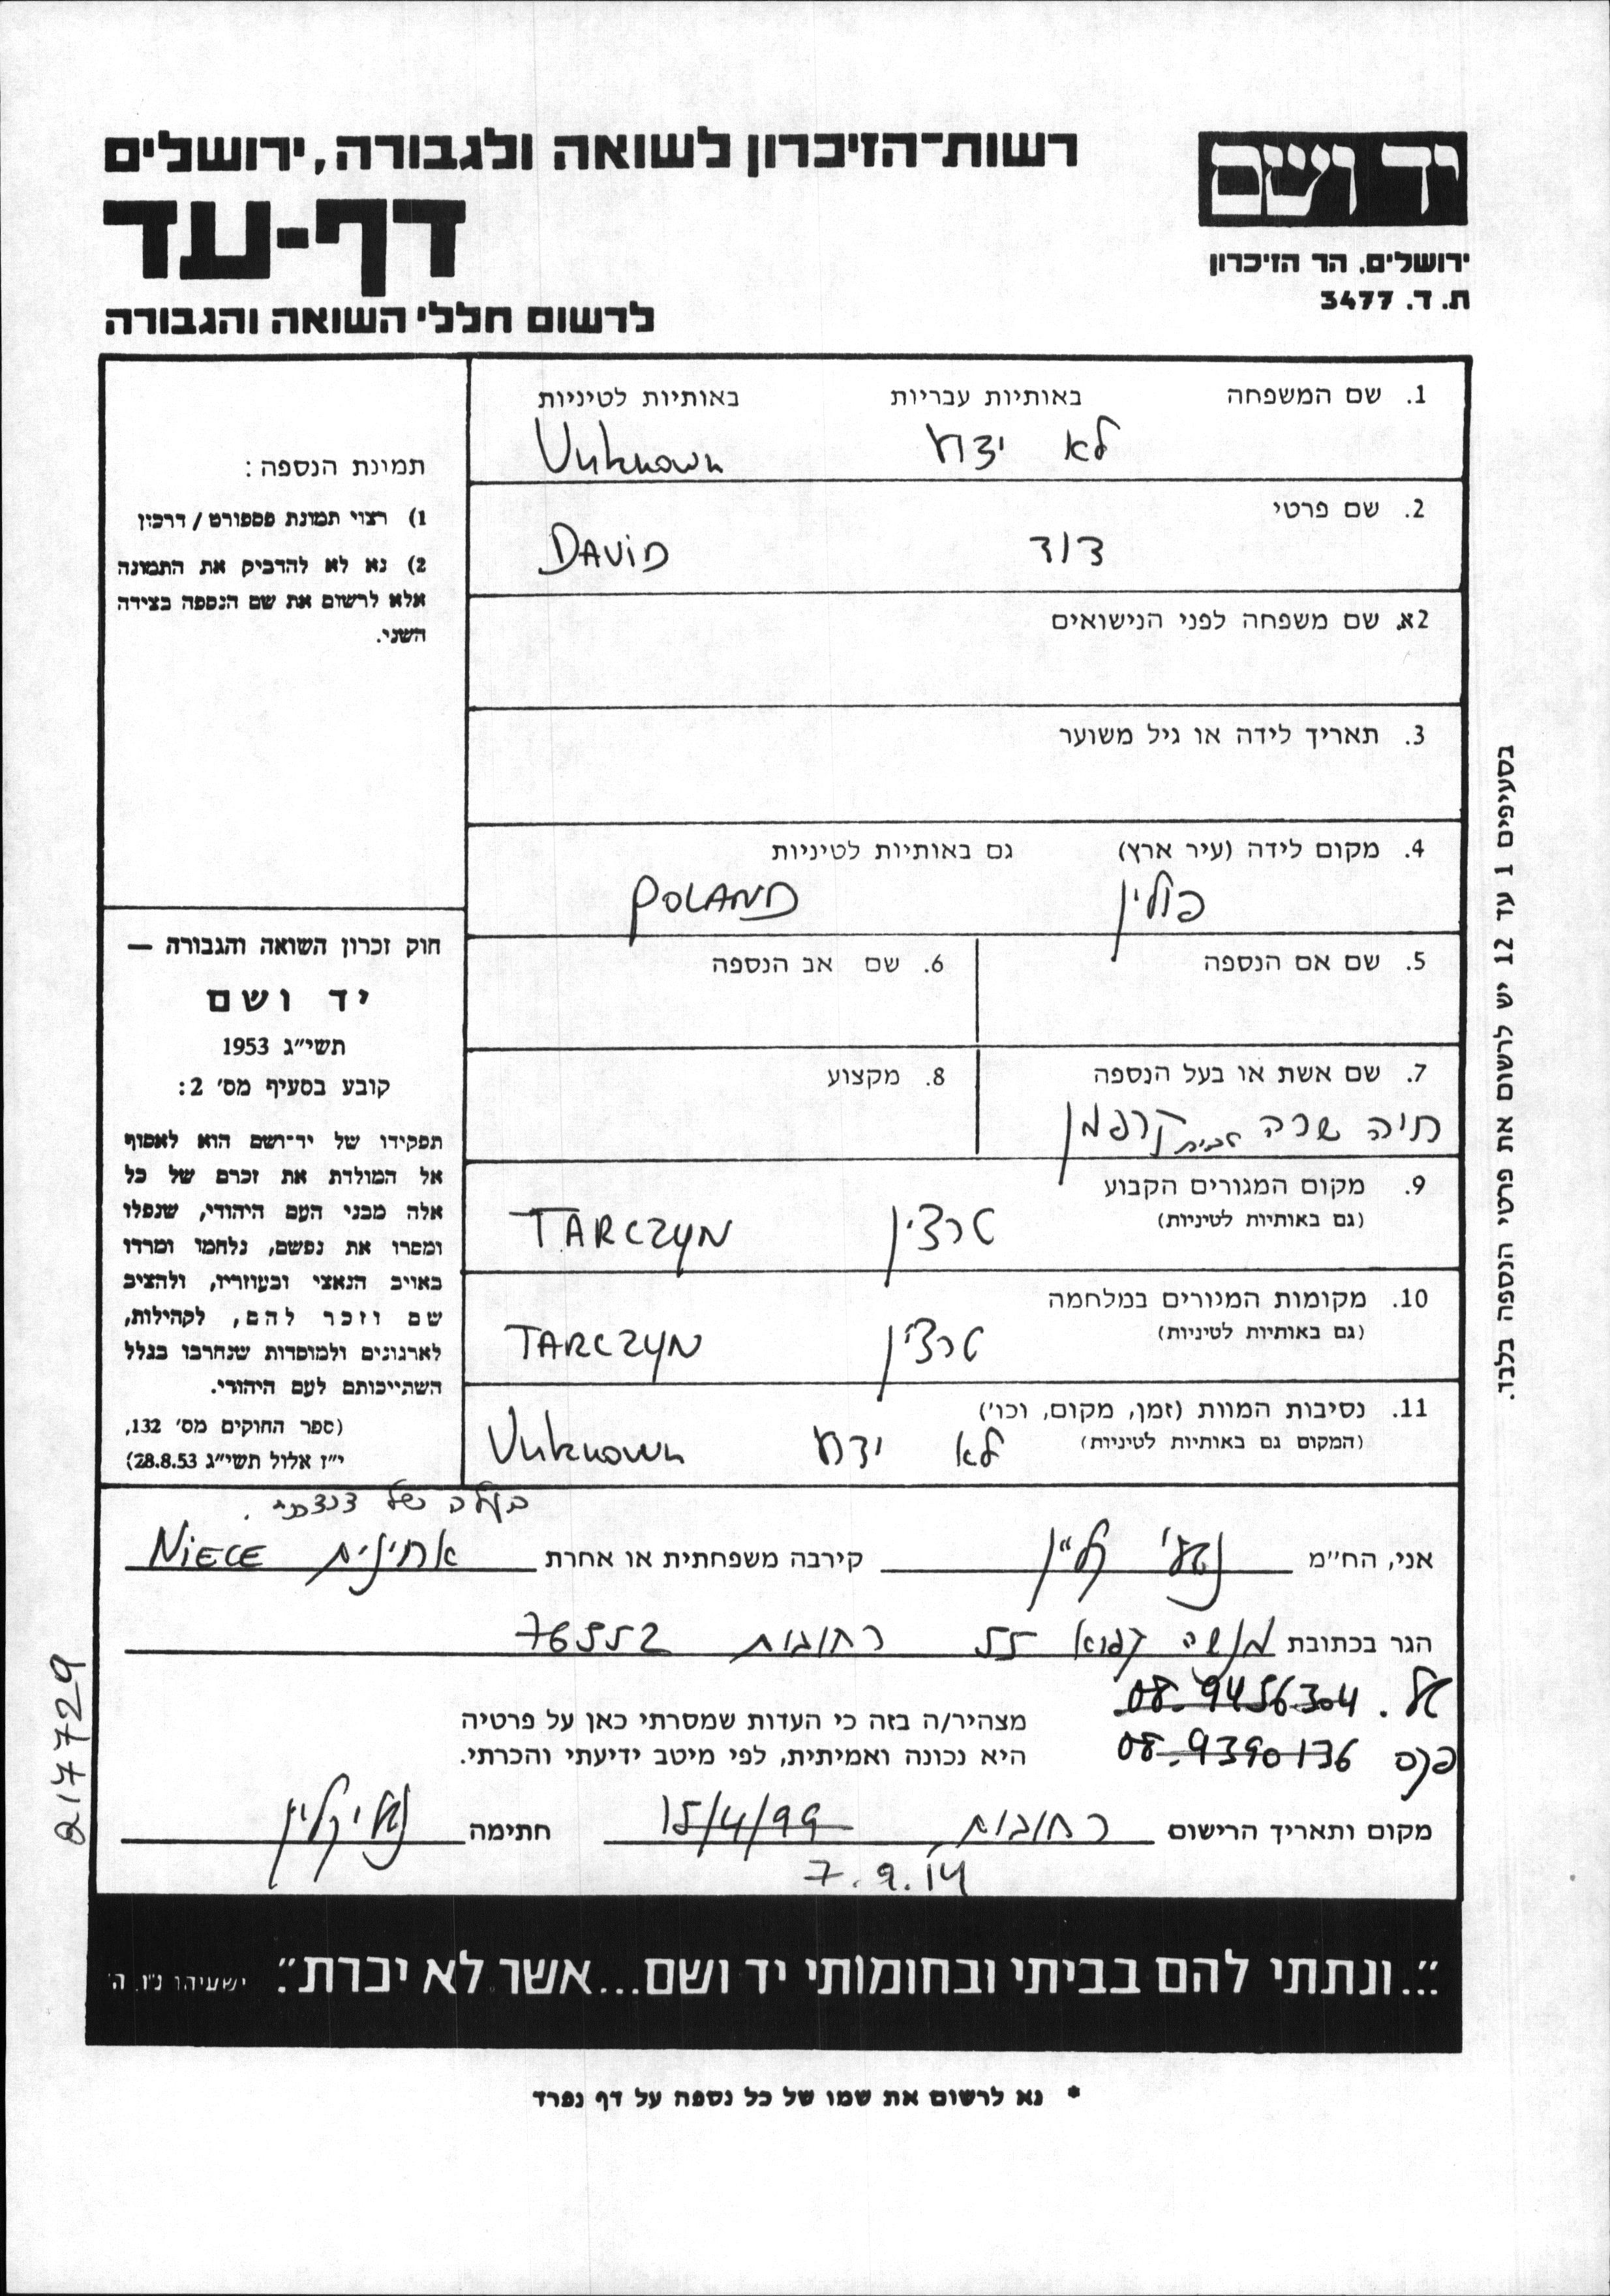 רשות-הזיכרון לשואה ולגבורה, ירושלים
דף-עד
לרשום חללי השואה והגבורה
יד ושם
ירושלים, הר הזיכרון
ת. ד. 3477
1. שם המשפחה באותיות עבריות באותיות לטיניות
לא ידוע Unknown
2. שם פרטי
דוד DAViD
2א. שם משפחה לפני הנישואים
3. תאריך לידה או גיל משוער
4. מקום לידה (עיר ארץ) גם באותיות לטיניות
פולין POLAND
5. שם אם הנספה 6. שם אב הנספה
7. שם אשת או בעל הנספה 8. מקצוע
חיה שרה מבית קרפמן
9. מקום המגורים הקבוע
(גם באותיות לטיניות)
טרצ'ין TARCZYN
10. מקומות המגורים במלחמה
(גם באותיות לטיניות)
טרצ'ין TARCZYN
11. נסיבות המוות (זמן, מקום, וכו')
(המקום גם באותיות לטיניות)
לא ידוע Unknown
תמונת הנספה:
1) רצוי תמונת פספורט / דרכון
2) נא לא להדביק את התמונה
אלא לרשום את שם הנספה בצידה
השני.
חוק זכרון השואה והגבורה —
יד ושם
תשי"ג 1953
קובע בסעיף מס' 2:
תפקידו של יד-ושם הוא לאסוף
אל המולדת את זכרם של כל
אלה מבני העם היהודי, שנפלו
ומסרו את נפשם, נלחמו ומרדו
באויב הנאצי ובעוזריו, ולהציב
שם וזכר להם, לקהילות,
לארגונים ולמוסדות שנחרבו בגלל
השתייכותם לעם היהודי.
(ספר החוקים מס' 132,
י"ז אלול תשי"ג 28.8.53)
בעלה של
אני, הח"מ קליין קירבה משפחתית או אחרת אחינית NiECE
הגר בכתובת מנשה קפרא 55 רחובות 76552
טל. 08.9456304
פקס 08.9390136
מצהיר/ה בזה כי העדות שמסרתי כאן על פרטיה
היא נכונה ואמיתית, לפי מיטב ידיעתי והכרתי.
מקום ותאריך הרישום רחובות, 15/4/99 חתימה קליין
7.9.14
"...ונתתי להם בביתי ובחומותי יד ושם...אשר לא יכרת". ישעיהו נ"ו, ה'
* נא לרשום את שמו של כל נספה על דף נפרד
בסעיפים 1 עד 12 יש לרשום את פרטי הנספה בלבד.
217729